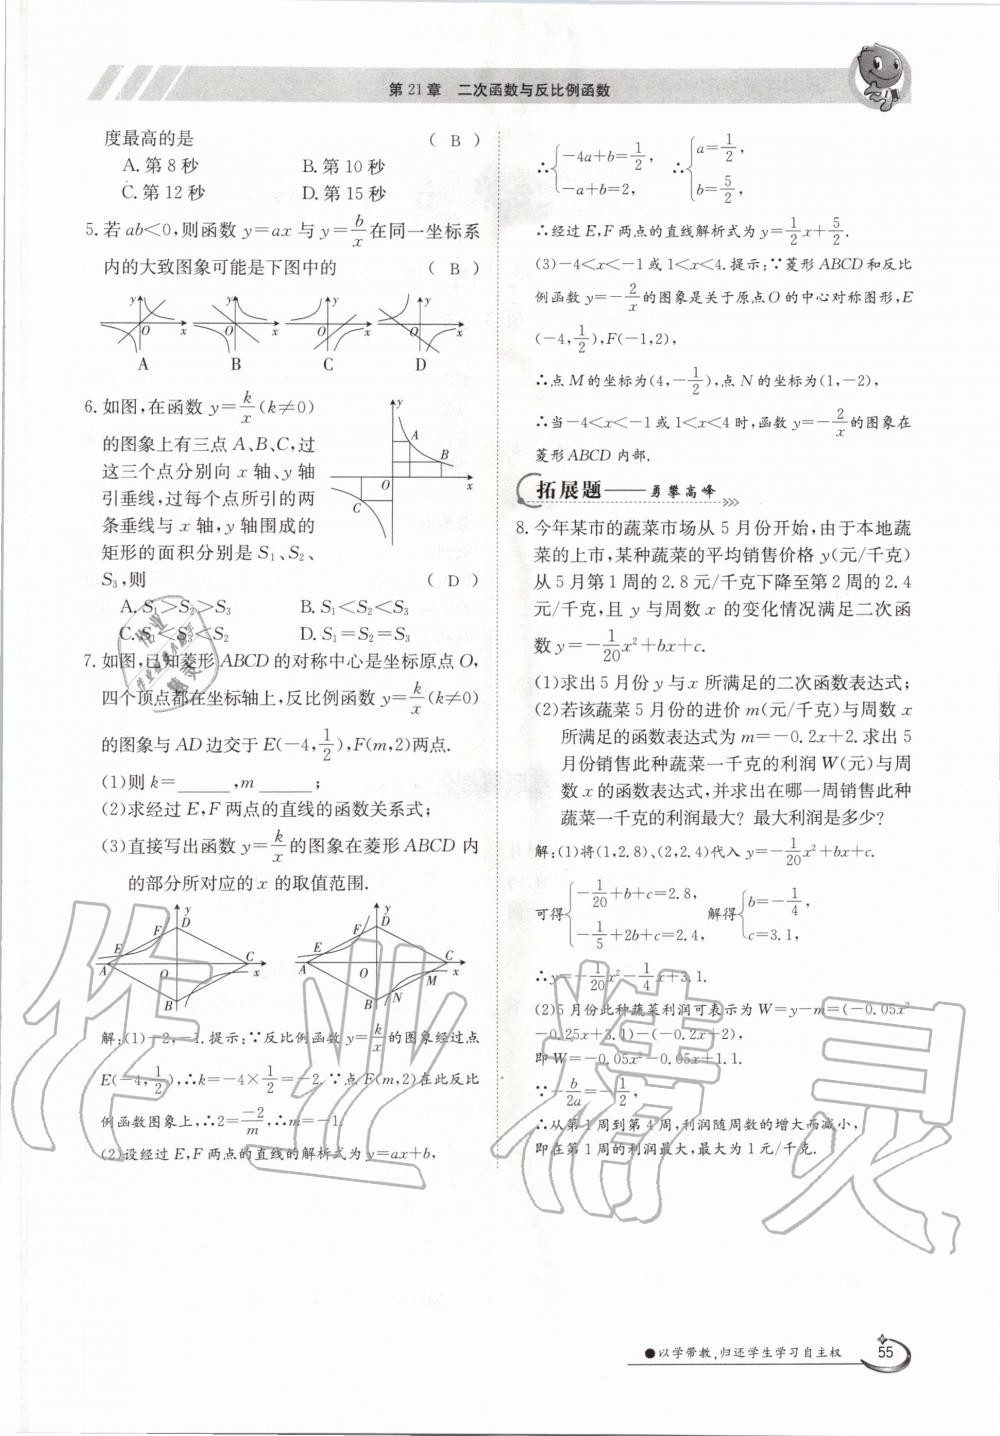 第21章 二次函数与反比例函数
度最高的是 ( B )
A. 第 8 秒 B. 第 10 秒
C. 第 12 秒 D. 第 15 秒
5. 若 ab<0,则函数 y=ax 与 y=b/x 在同一坐标系
内的大致图象可能是下图中的 ( B )
y O x y O x y O x y O x
A B C D
6. 如图,在函数 y=k/x(k≠0)
的图象上有三点 A、B、C,过
这三个点分别向 x 轴、y 轴
引垂线,过每个点所引的两
条垂线与 x 轴,y 轴围成的
矩形的面积分别是 S₁、S₂、
S₃,则 ( D )
y A B O x C
A. S₁>S₂>S₃ B. S₁<S₂<S₃
C. S₁<S₃<S₂ D. S₁=S₂=S₃
7. 如图,已知菱形 ABCD 的对称中心是坐标原点 O,
四个顶点都在坐标轴上,反比例函数 y=k/x(k≠0)
的图象与 AD 边交于 E(-4,1/2),F(m,2)两点.
(1)则 k=______,m______;
(2)求经过 E,F 两点的直线的函数关系式;
(3)直接写出函数 y=k/x 的图象在菱形 ABCD 内
的部分所对应的 x 的取值范围.
y F D E A O C x B
y F D E A O C x M B N
解:(1)-2,-1.提示:∵反比例函数 y=k/x 的图象经过点
E(-4,1/2),∴k=-4×1/2=-2.∵点 F(m,2)在此反比
例函数图象上,∴2=-2/m,∴m=-1.
(2)设经过 E,F 两点的直线的解析式为 y=ax+b,
∴{-4a+b=1/2, -a+b=2, ∴{a=1/2, b=5/2,
∴经过 E,F 两点的直线解析式为 y=1/2x+5/2.
(3)-4<x<-1 或 1<x<4.提示:∵菱形 ABCD 和反比
例函数 y=-2/x 的图象是关于原点 O 的中心对称图形,E
(-4,1/2),F(-1,2),
∴点 M 的坐标为(4,-1/2),点 N 的坐标为(1,-2),
∴当-4<x<-1 或 1<x<4 时,函数 y=-2/x 的图象在
菱形 ABCD 内部.
拓展题——勇攀高峰
8. 今年某市的蔬菜市场从 5 月份开始,由于本地蔬
菜的上市,某种蔬菜的平均销售价格 y(元/千克)
从 5 月第 1 周的 2.8 元/千克下降至第 2 周的 2.4
元/千克,且 y 与周数 x 的变化情况满足二次函
数 y=-1/20x²+bx+c.
(1)求出 5 月份 y 与 x 所满足的二次函数表达式;
(2)若该蔬菜 5 月份的进价 m(元/千克)与周数 x
所满足的函数表达式为 m=-0.2x+2.求出 5
月份销售此种蔬菜一千克的利润 W(元)与周
数 x 的函数表达式,并求出在哪一周销售此种
蔬菜一千克的利润最大? 最大利润是多少?
解:(1)将(1,2.8)、(2,2.4)代入 y=-1/20x²+bx+c.
可得{-1/20+b+c=2.8, -1/5+2b+c=2.4, 解得{b=-1/4, c=3.1,
∴y=-1/20x²-1/4x+3.1.
(2)5 月份此种蔬菜利润可表示为 W=y-m=(-0.05x²
-0.25x+3.1)-(-0.2x+2),
即 W=-0.05x²-0.05x+1.1.
∵-b/2a=-1/2,
∴从第 1 周到第 4 周,利润随周数的增大而减小,
即在第 1 周的利润最大,最大为 1 元/千克.
作业精灵
●以学带教,归还学生学习自主权
55